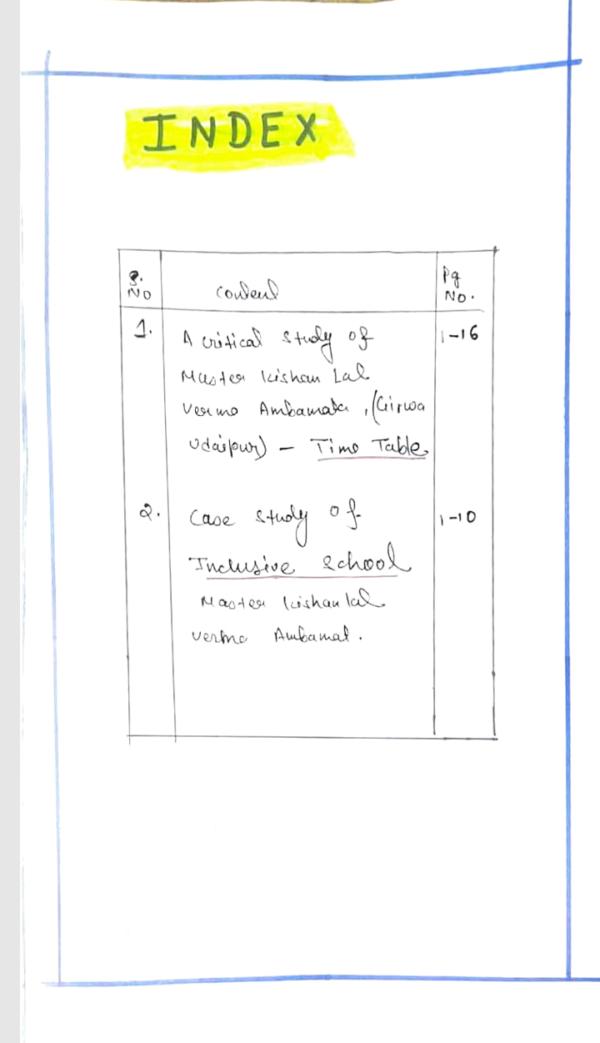 INDEX
S. No
Content
Pg No.
1.
A critical study of
1-16
Master Kishan Lal
Verma Ambamata, (Girwa
Udaipur) - Time Table
2.
Case study of
1-10
Inclusive School
Master Kishan lal
Verma Ambamat.